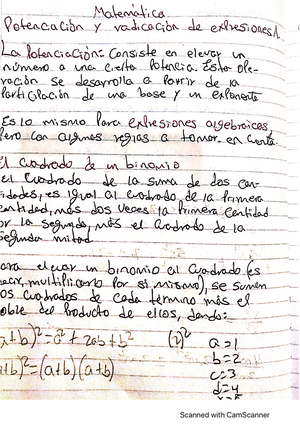 Matemática
Potenciación y radicación de expresiones A
La Potenciación: Consiste en elevar un
número a una cierta Potencia. Esta ope-
ración se desarrolla a Partir de la
Participación de una base y un exponente
Es lo mismo para expresiones algebraicas
Pero con algunas reglas a tomar en cuenta.
El cuadrado de un binomio
el cuadrado de la suma de dos can-
tidades, es igual al cuadrado de la Primera
cantidad, más dos veces la Primera Cantidad
por la Segunda, más el cuadrado de la
Segunda mitad
Para elevar un binomio al cuadrado (es
decir, multiplicarlo Por sí mismo), se suman
los cuadrados de cada término más el
doble del producto de ellos, dando:
(a+b)²=a²+2ab+b²
a=1
b=2
(a+b)²=(a+b)(a+b)
c=3
d=4
Scanned with CamScanner